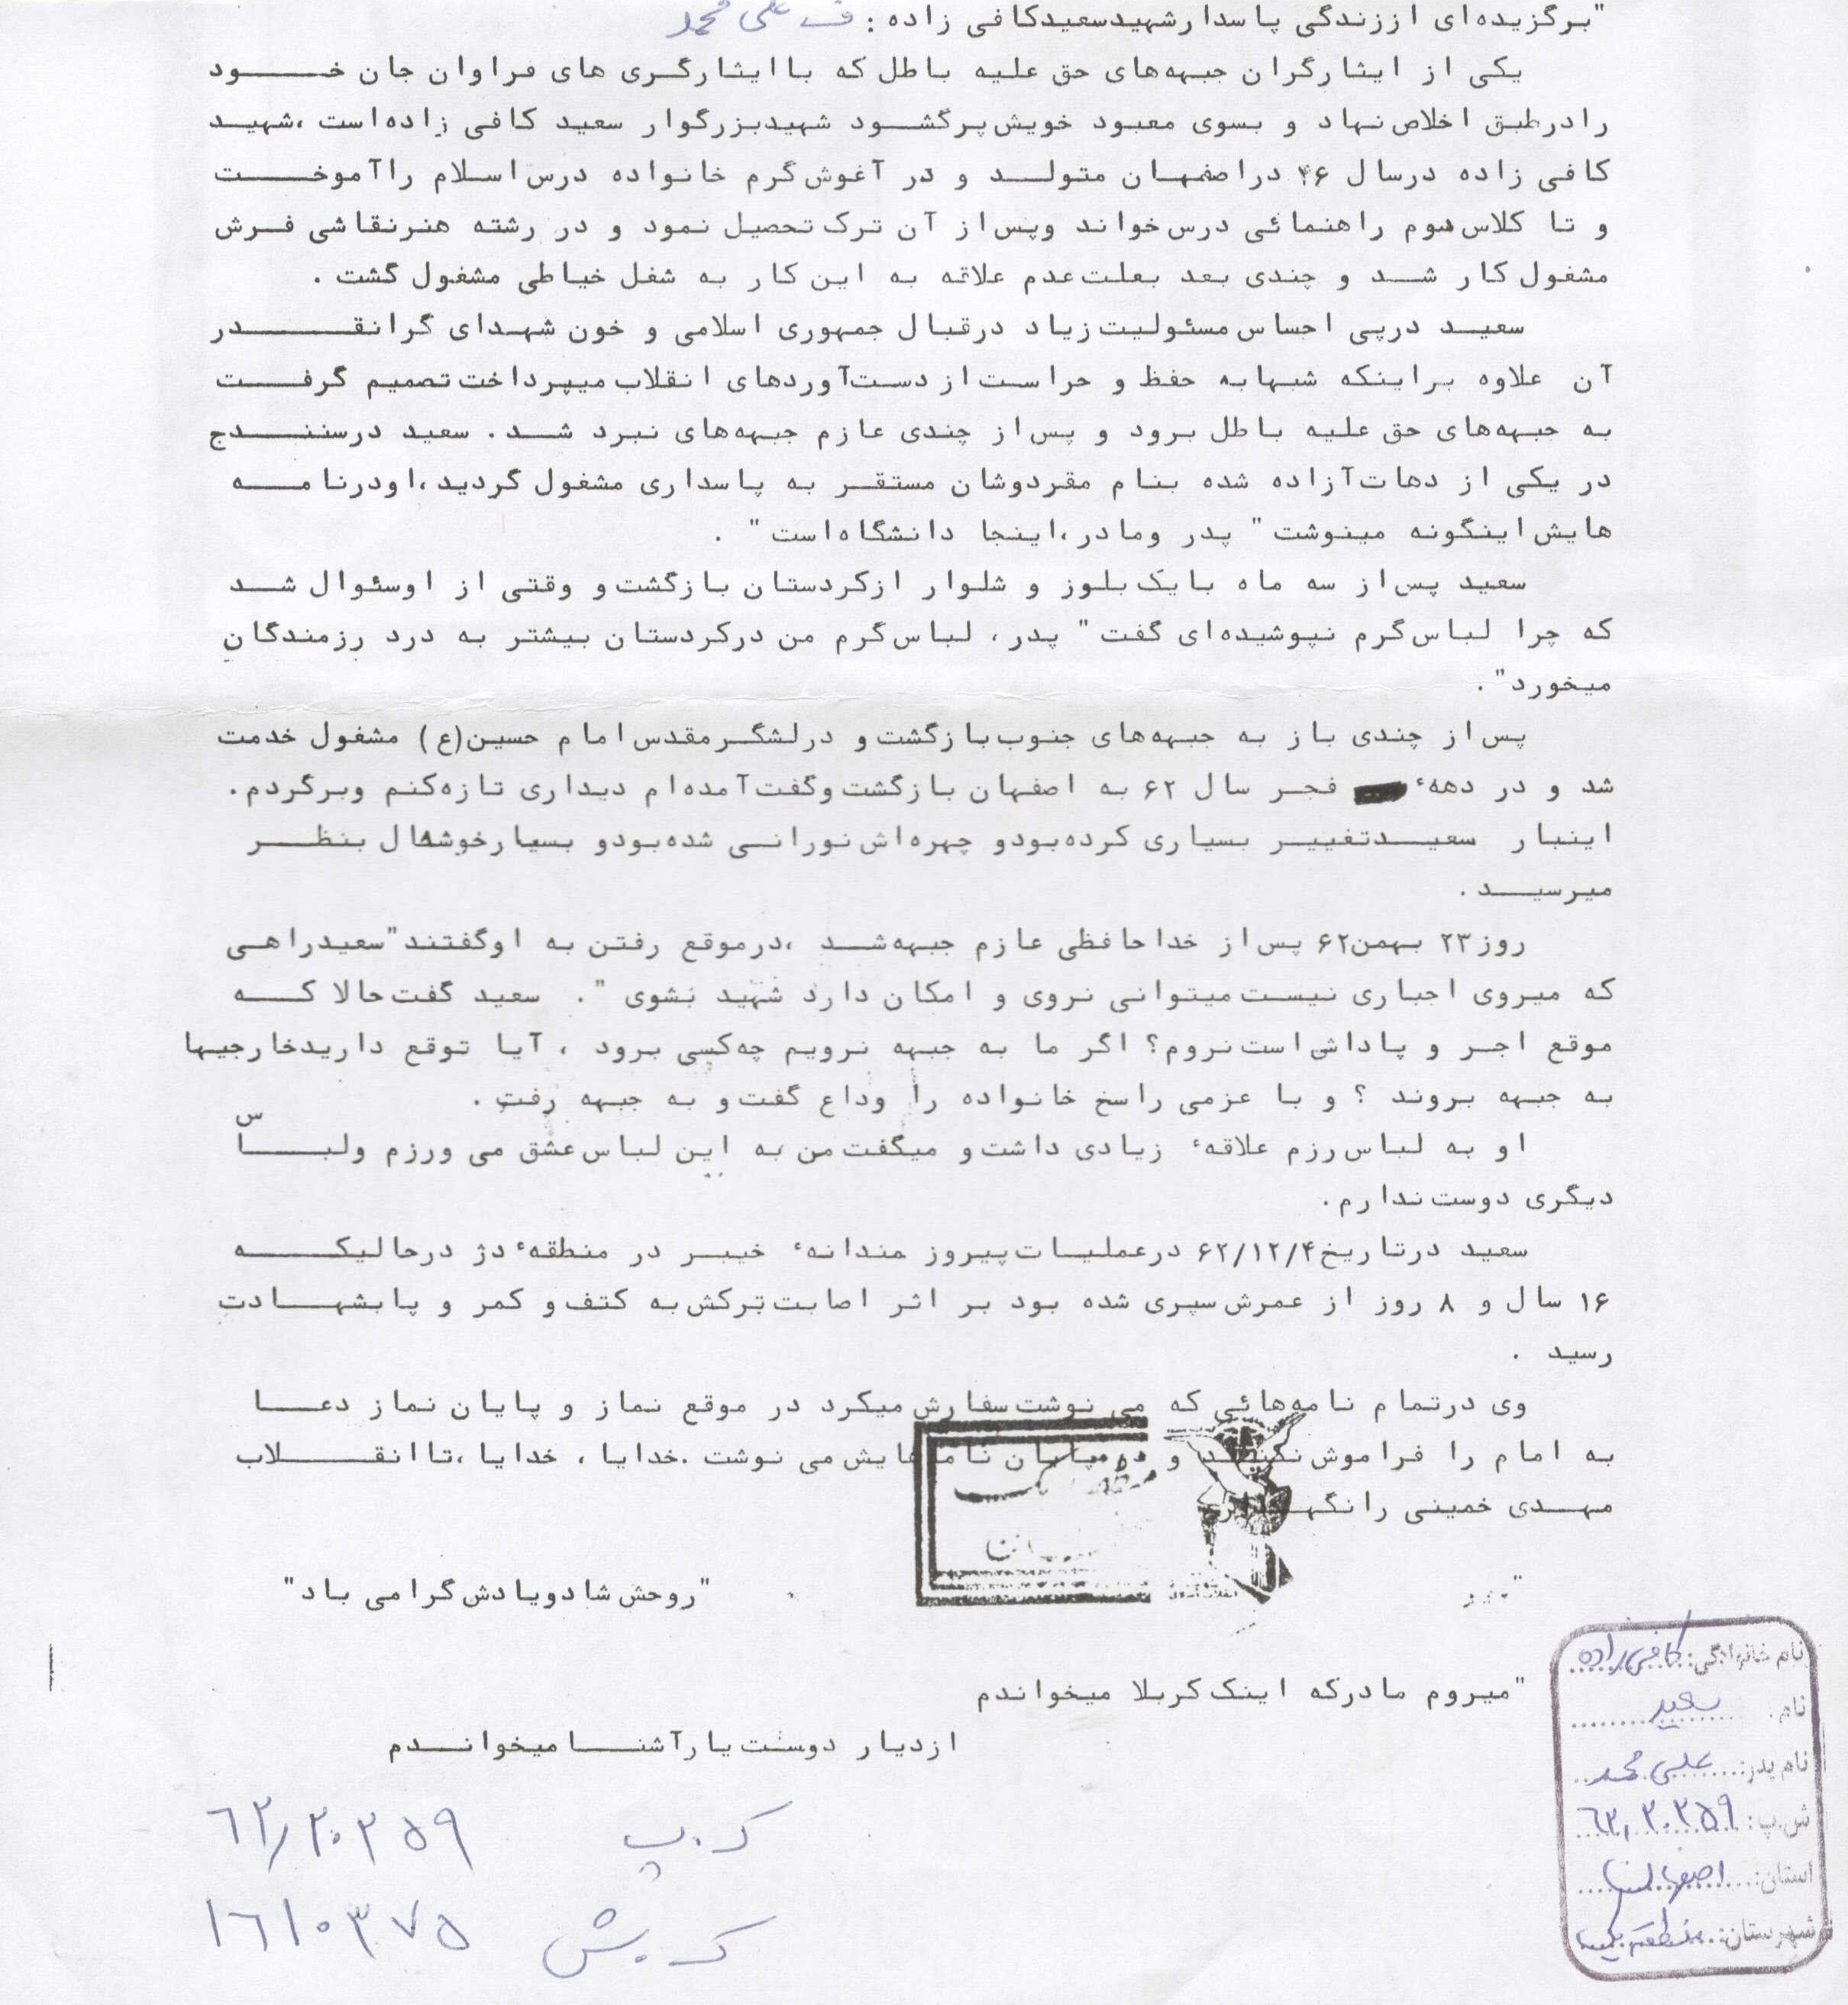 "برگزیده‌ای اززندگی پاسدارشهیدسعیدکافی زاده : ف علی محمد
یکی از ایثارگران جبهه‌های حق علیه باطل که باایثارگری های فراوان جان خود
رادرطبق اخلاص نهاد و بسوی معبود خویش پرگشود شهیدبزرگوار سعید کافی زاده‌است ،شهید
کافی زاده درسال ۴۶ دراصفهان متولد و در آغوش گرم خانواده درس اسلام راآموخت
و تا کلاس سوم راهنمائی درس خواند وپس از آن ترک تحصیل نمود و در رشته هنرنقاشی فرش
مشغول کار شد و چندی بعد بعلت عدم علاقه به این کار به شغل خیاطی مشغول گشت .
سعید درپی احساس مسئولیت زیاد درقبال جمهوری اسلامی و خون شهدای گرانقدر
آن علاوه براینکه شبهابه حفظ و حراست از دست‌آوردهای انقلاب میپرداخت تصمیم گرفت
به جبهه‌های حق علیه باطل برود و پس از چندی عازم جبهه‌های نبرد شد. سعید درسنندج
در یکی از دهات آزاده شده بنام مقردوشان مستقر به پاسداری مشغول گردید ،اودرنامه
هایش اینگونه مینوشت " پدر ومادر ،اینجا دانشگاه‌است" .
سعید پس از سه ماه بایک بلوز و شلوار ازکردستان بازگشت و وقتی از اوسئوال شد
که چرا لباس گرم نپوشیده‌ای گفت " پدر، لباس گرم من درکردستان بیشتر به درد رزمندگان
میخورد".
پس از چندی باز به جبهه‌های جنوب بازگشت و درلشگرمقدس امام حسین(ع) مشغول خدمت
شد و در دههٔ فجر سال ۶۲ به اصفهان بازگشت وگفت آمده‌ام دیداری تازه‌کنم وبرگردم.
اینبار سعیدتغییر بسیاری کرده‌بودو چهره‌اش نورانی شده‌بودو بسیارخوشحال بنظر
میرسید .
روز ۲۳ بهمن۶۲ پس از خداحافظی عازم جبهه‌شد ،درموقع رفتن به اوگفتند"سعیدراهی
که میروی اجباری نیست میتوانی نروی و امکان دارد شهید بشوی ". سعید گفت حالا که
موقع اجر و پاداش است نروم؟ اگر ما به جبهه نرویم چه‌کسی برود ، آیا توقع داریدخارجیها
به جبهه بروند ؟ و با عزمی راسخ خانواده را وداع گفت و به جبهه رفت .
او به لباس رزم علاقهٔ زیادی داشت و میگفت من به این لباس عشق می ورزم ولباس
دیگری دوست ندارم.
سعید درتاریخ ۶۲/۱۲/۴ درعملیات پیروز مندانهٔ خیبر در منطقهٔ دژ درحالیکه
۱۶ سال و ۸ روز از عمرش سپری شده بود بر اثر اصابت ترکش به کتف و کمر و پابشهادت
رسید .
وی درتمام نامه‌هائی که می نوشت سفارش میکرد در موقع نماز و پایان نماز دعا
به امام را فراموش نکنید و در پایان نامه‌هایش می نوشت .خدایا ، خدایا ،تاانقلاب
مهدی خمینی رانگهدار
"روحش شادویادش گرامی باد"
"میروم مادرکه اینک کربلا میخواندم
ازدیار دوست یارآشنا میخواندم
ک.پ ۶۲/۲۰۲۵۹
ک.ش ۱۶۱۰۳۷۵
نام خانوادگی: کافی زاده
نام. سعید
نام پدر: علی محمد
ش.پ: ۶۲,۲۰۲۵۹
استان: اصفهان
شهرستان: منطقه یک